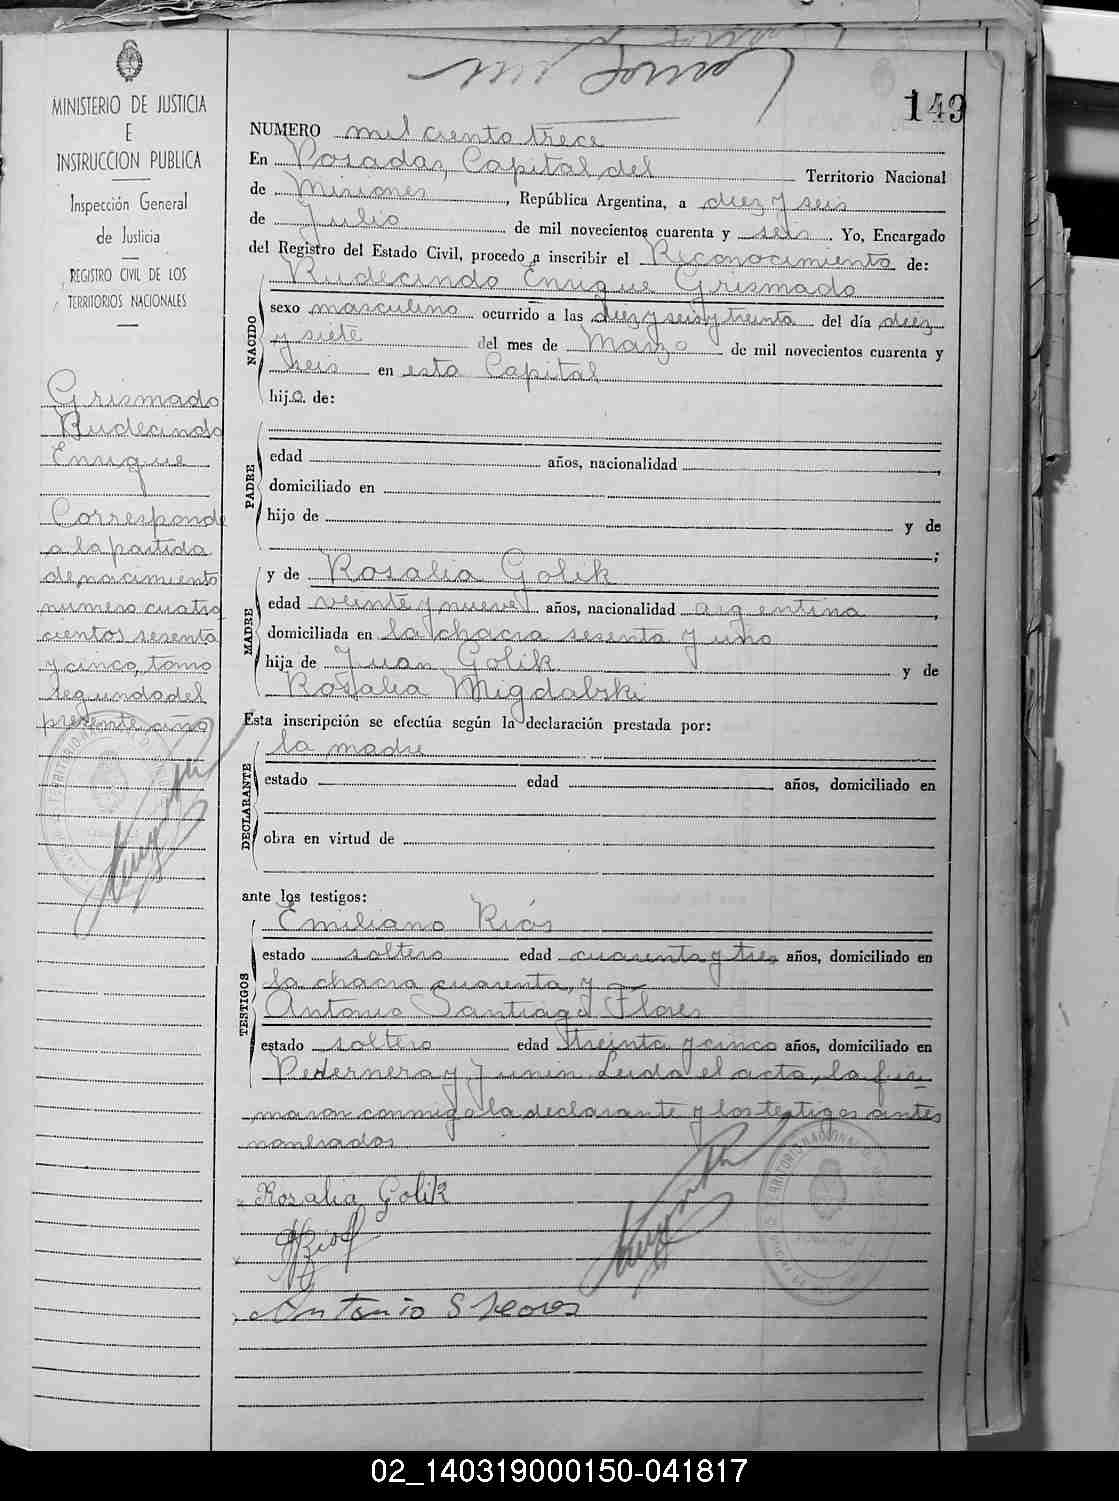 149
MINISTERIO DE JUSTICIA
E
INSTRUCCION PUBLICA
Inspección General
de Justicia
REGISTRO CIVIL DE LOS
TERRITORIOS NACIONALES
Grismado
Rudecindo
Enrique
Corresponde
a la partida
de nacimiento
numero cuatro
cientos sesenta
y cinco, tomo
segundo del
presente año
NUMERO mil ciento trece
En Posadas, Capital del Territorio Nacional
de Misiones, República Argentina, a diez y seis
de Julio de mil novecientos cuarenta y seis. Yo, Encargado
del Registro del Estado Civil, procedo a inscribir el Reconocimiento de:
Rudecindo Enrique Grismado
NACIDO
sexo masculino ocurrido a las diez y seis y treinta del día diez
y siete del mes de Marzo de mil novecientos cuarenta y
seis en esta Capital
hijo de:
PADRE
edad años, nacionalidad ,
domiciliado en
hijo de y de
;
MADRE
y de Rosalia Golik
edad veinte y nueve años, nacionalidad argentina,
domiciliada en la chacra sesenta y uno
hija de Juan Golik y de
Rosalia Migdalski
Esta inscripción se efectúa según la declaración prestada por:
DECLARANTE
la madre
estado edad años, domiciliado en
obra en virtud de
ante los testigos:
TESTIGOS
Emiliano Riós
estado soltero edad cuarenta y tres años, domiciliado en
la chacra cuarenta, y
Antonio Santiago Flores
estado soltero edad treinta y cinco años, domiciliado en
Pedernera y Junin Leida el acta, la fir_
maron conmigo la declarante y los testigos antes
nombrados
Rosalia Golik
Antonio S Flores
02_140319000150-041817